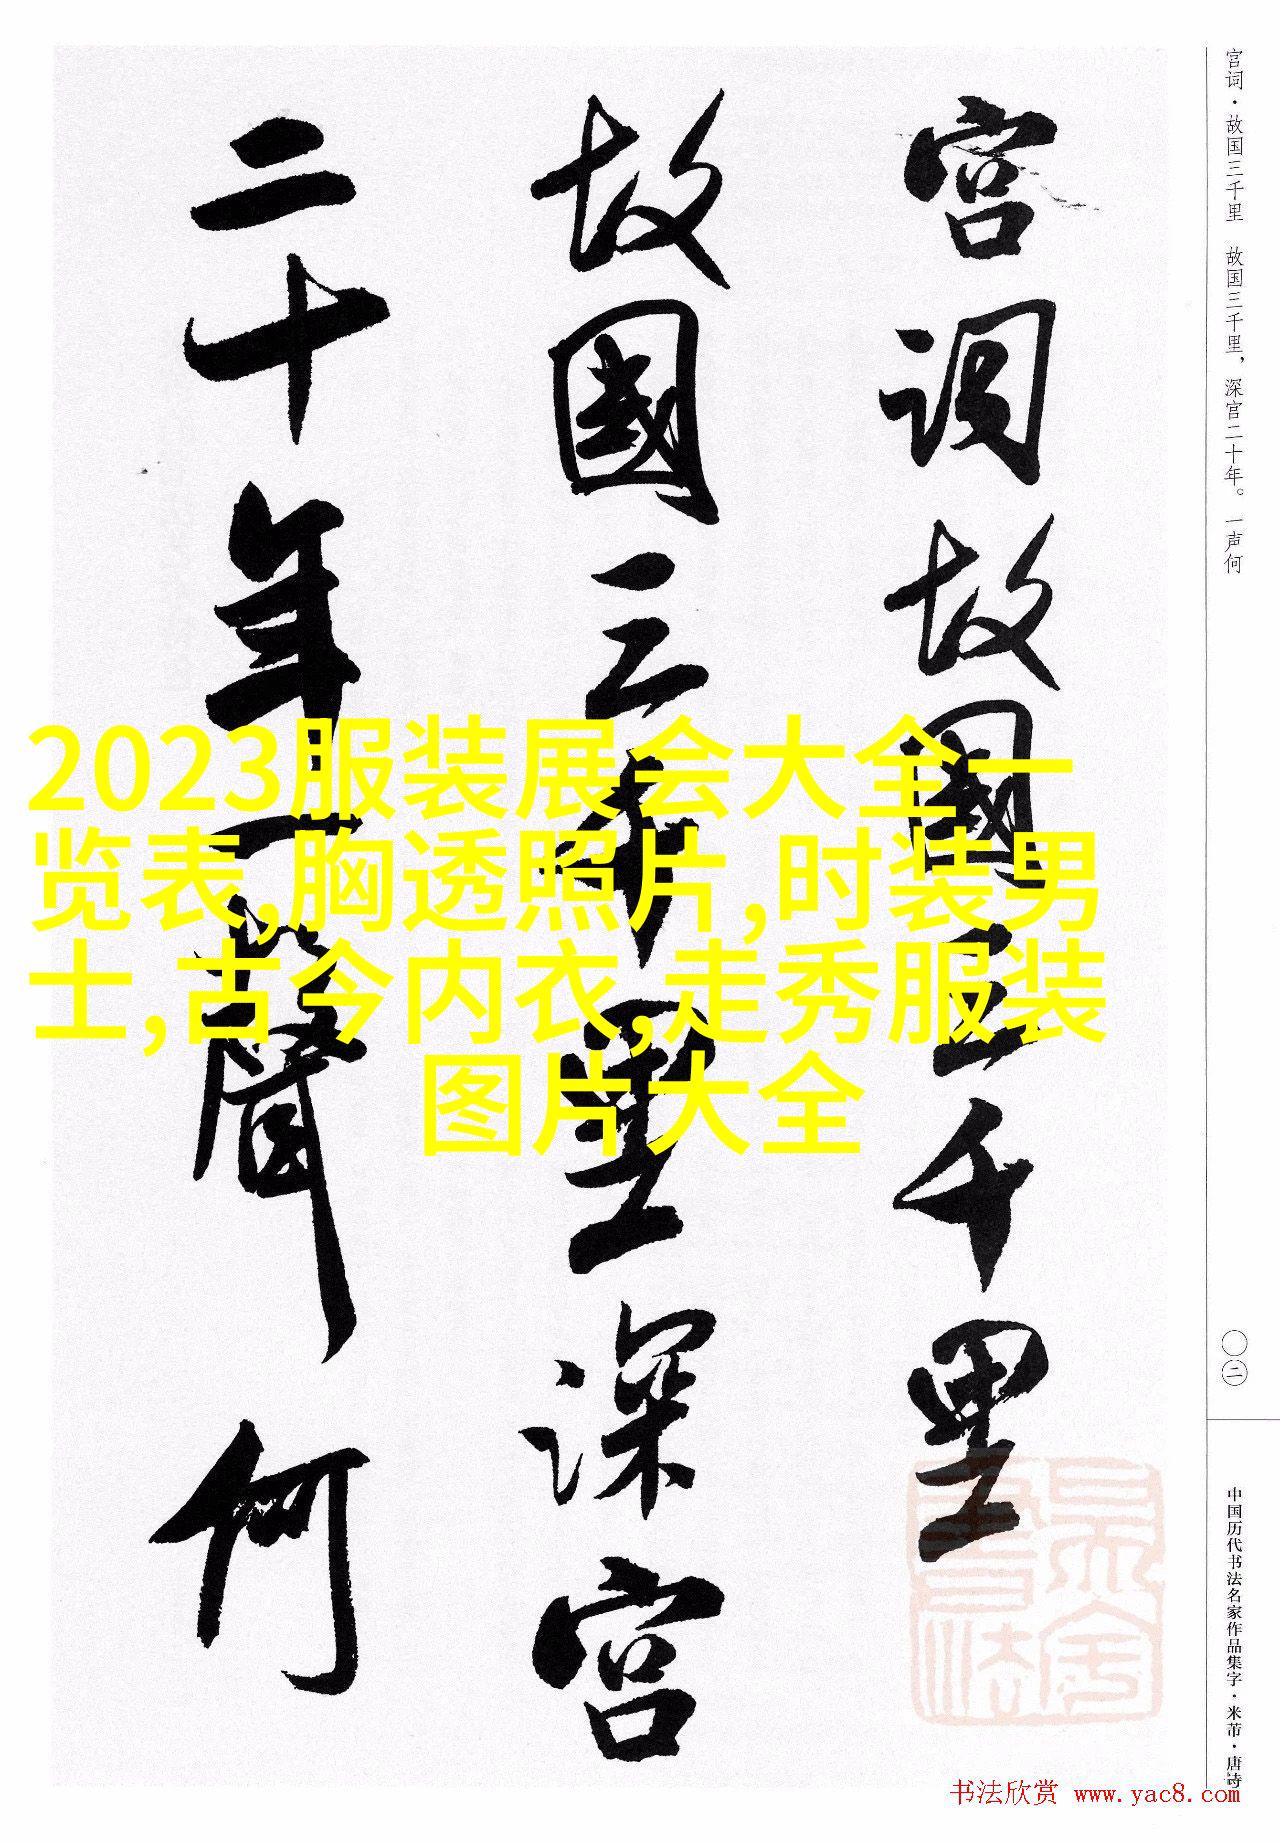 宫词故國三千里
故國三千里深宫
二十年一聲何
宫词·故国三千里 故国三千里，深宫二十年。一声何
〇二
中国历代书法名家作品集字·米芾·唐诗
2023服装展会大全一
览表,胸透照片,时装男
士,古今内衣,走秀服装
图片大全
书法欣赏 www.yac8.com